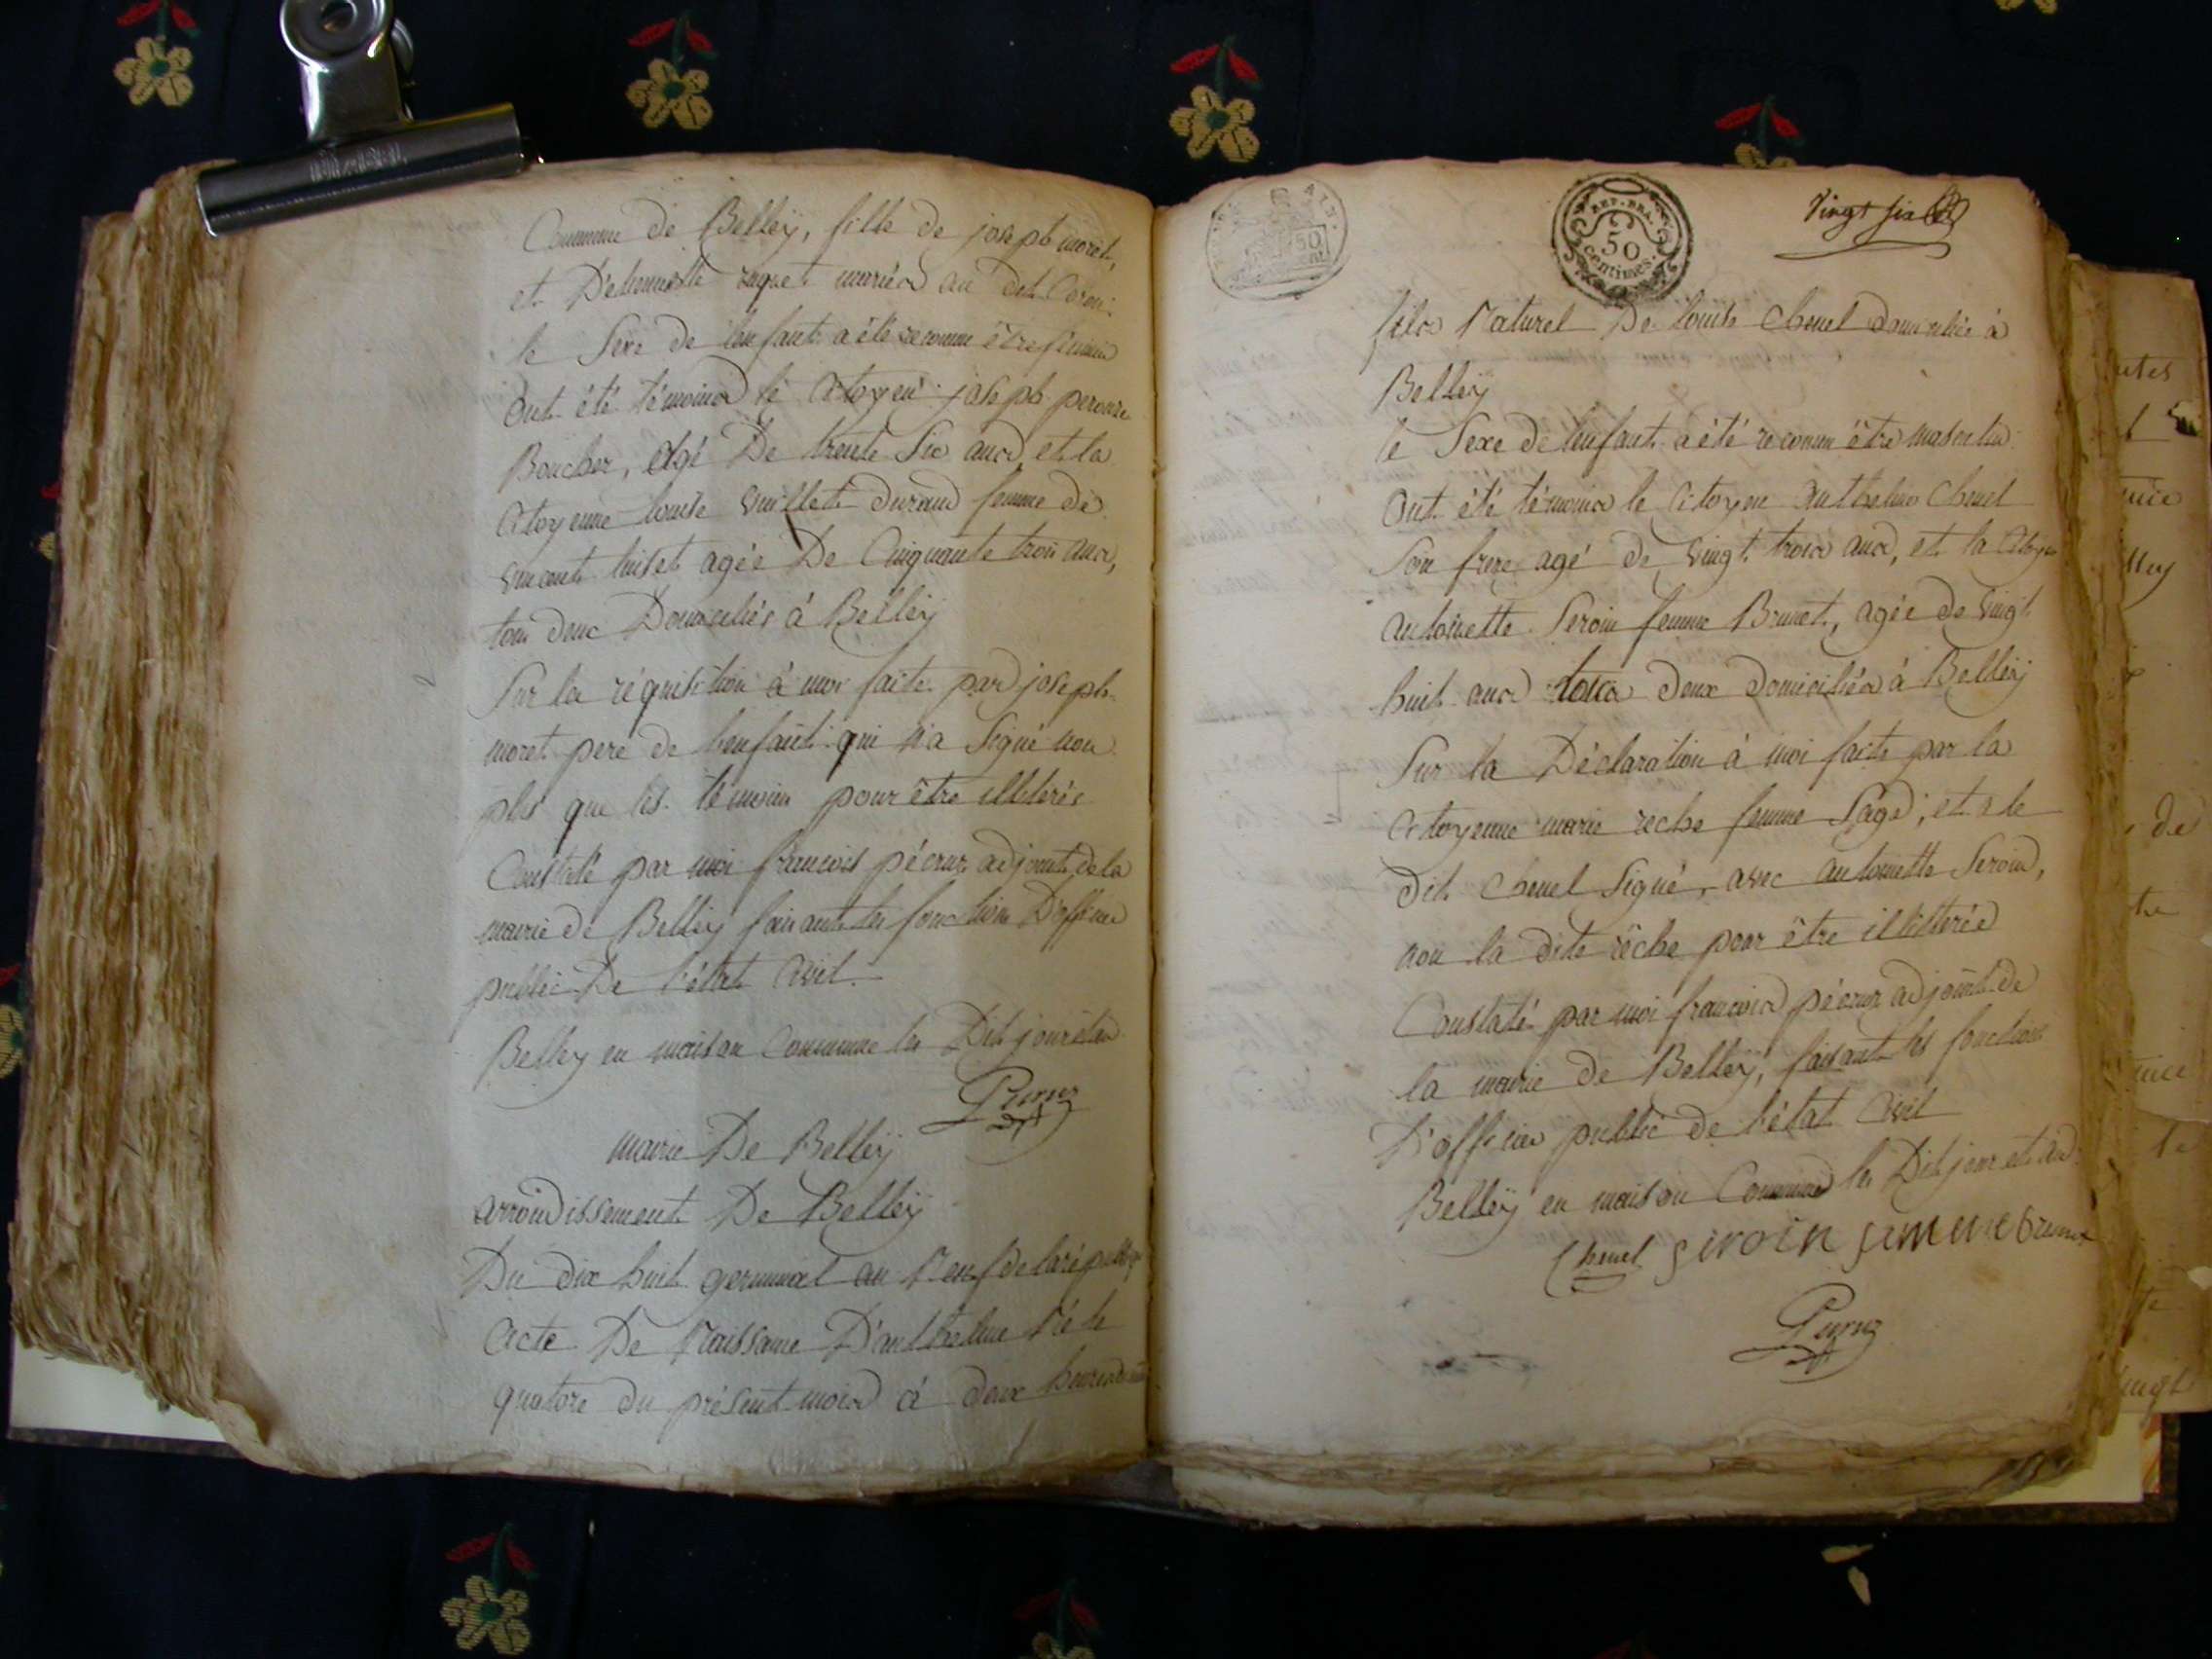 Commune de Belleÿ, fille de joseph moret,
et D'ethiennette mariés au dit
le Sexe de lenfant a été reconnu être féminin
Ont été témoins le Citoyen joseph
Boucher, agé De trente Six ans et la
Citoyenne louise Vuillet durand femme de
Vincent agée De Cinquante trois ans,
tous deux Domiciliés à Belleÿ
Sur la réquisition à moi faite par joseph
moret pere de lenfant qui n'a Signé non
plus que les témoins pour être illiterés
Constaté par moi françois péernz adjoint de la
mairie de Belley faisant les fonctions D'officier
public De l'état Civil.
Belley en maison Commune les Dit jour et an
mairie De Belleÿ
arrondissement De Belleÿ
Du dix huit germinal an Neuf de la république
Acte De Naissance D'anthelme Né le
quatorze du présent mois à deux heures
REP. FRA.
50
centimes.
Vingt six
fils Naturel De louise Chenel domiciliée à
Belleÿ
le Sexe de lenfant a été reconnu être masculin
Ont été témoins le Citoyen anthelme Chenel
Son frere, agé de Vingt trois ans, et la Citoyenne
antoinette Seroin femme Brunet, agée de Vingt
huit ans tous deux domiciliés à Belleÿ
Sur la Déclaration à moi faite par la
Citoyenne marie reche femme Sage, et a le
dit Chenel Signé, avec antoinette Seroin,
non la dite rêche pour être illitterée
Constaté par moi françois péernz adjoint de
la mairie de Belleÿ, faisant les fonctions
D'officier public de l'état Civil
Belleÿ en maison Commune les Dit jour et an
Chenel Siroin femme brunet